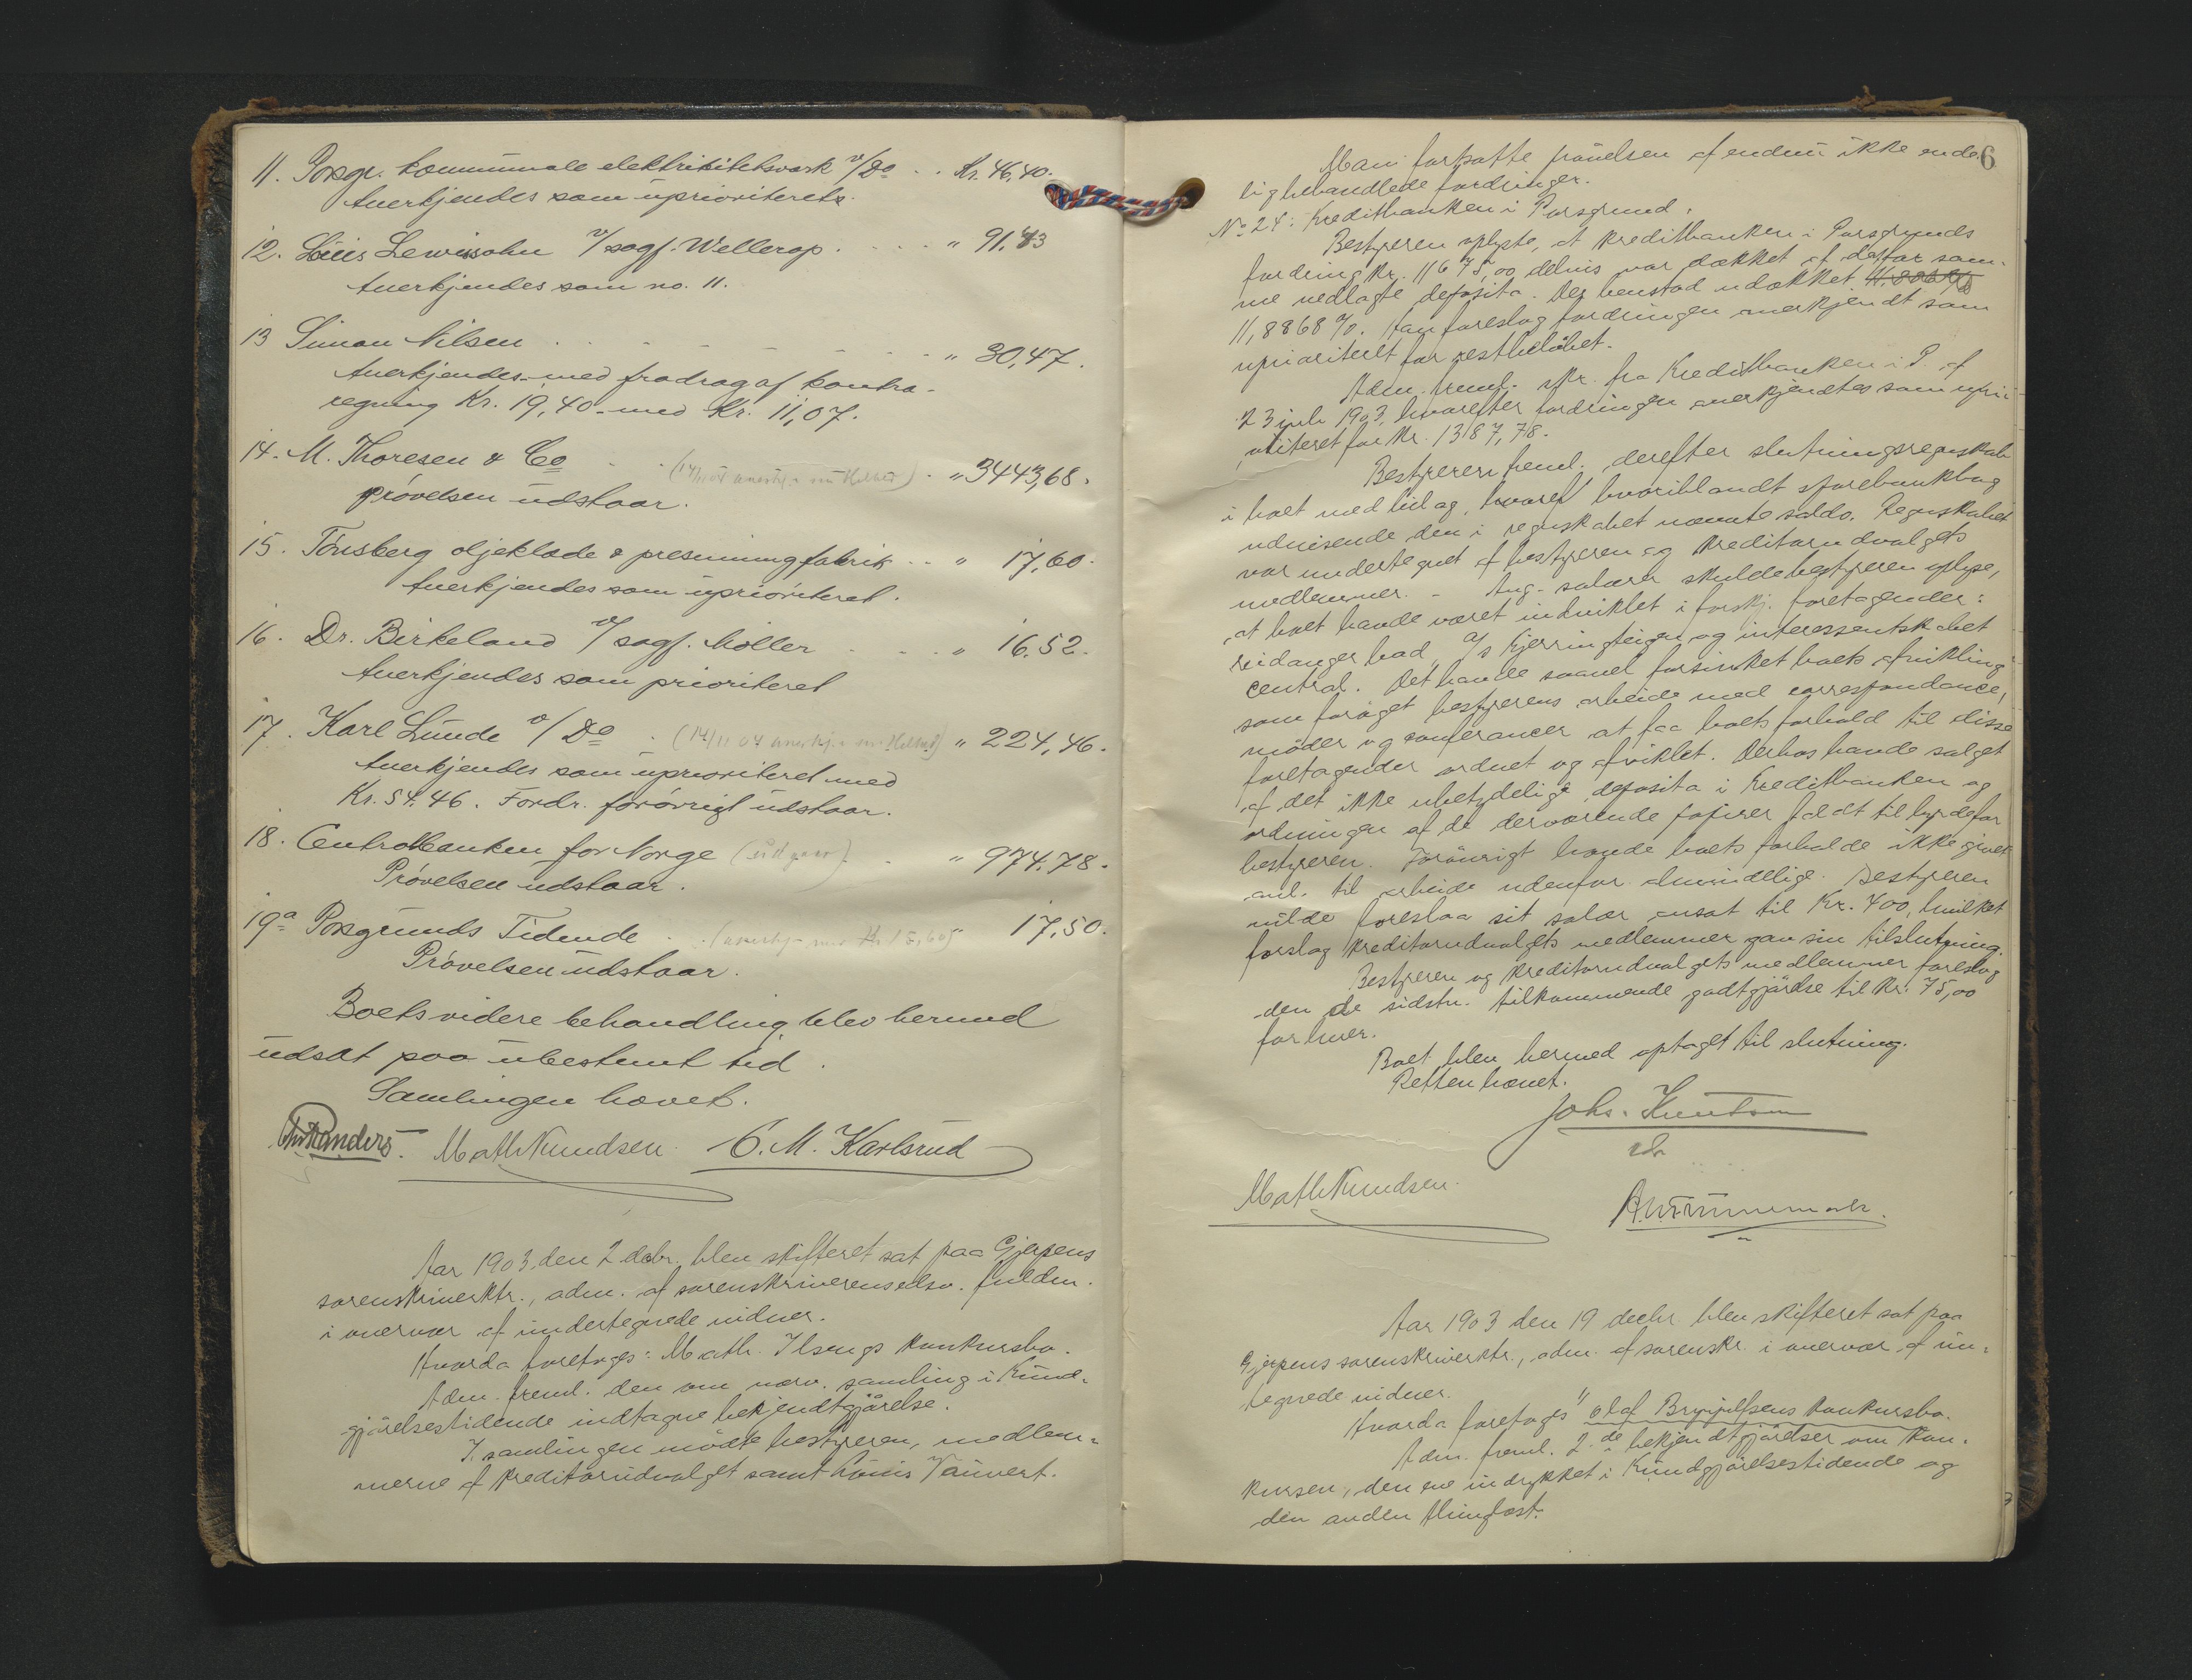 11. Porsgr. kommunale elektricitetsværk v/Do . . Kr. 46,40.
Anerkjendes som uprioriterets.
12. Louis Lewissohn v/ sagf. Wellerop . . . . " 91.43
Anerkjendes som no. 11.
13 Simon Nilsen . . . . . " 30,47.
Anerkjendes med fradrag af kontra-
regning Kr. 19,40 - med Kr. 11,07.
14. M. Thoresen & Co . . " 3443,68.
prøvelsen udstaar.
15. Tönsberg oljeklæde & presenningfabrik . . " 17,60.
Anerkjendes som uprioriteret.
16. Dr. Birkeland v/ sagf. Möller . . . " 16.52.
Anerkjendes som prioriteret
17. Karl Lunde v/Do . (14/11 04 anerkj. " 224,46.
Anerkjendes som uprioriteret med
Kr. 54.46. Fordr. forövrigt udstaar.
18. Centralbanken for Norge (udgaar) . " 974.78.
Prøvelsen udstaar.
19a Porsgrunds Tidende . . (anerkj. med Kr. 15,60) " 17,50.
Prøvelsen udstaar.
Boets videre behandling blev hermed
udsat paa ubestemt tid.
Samlingen hævet.
Math Knudsen. C. M. Karlsrud
Aar 1903 den 2 debr. blev skifteret sat paa Gjerpens
sorenskriverktr., adm. af sorenskriverens edsv. fuldm.
i overvær af undertegnede vidner.
Hvorda foretoges: Math. Ilsengs konkursbo.
Adm. freml. den om nærv. samling i Kund-
gjörelsestidende indtagne bekjendtgjörelse.
I samlingen mödte bestyreren, medlem-
merne af kreditorudvalget samt Louis Vauvert.
6
Man fortsatte prövelsen af endnu ikke ende-
lig behandlede fordringer.
No 24: Kreditbanken i Porsgrund.
Bestyreren oplyste, at Kreditbanken i Porsgrunds
fordring kr. 11675,00 delvis var dækket af derfor sam-
me nedlagte deposita. Der henstod udækket
11,8868 %. Han foreslog fordringen anerkjendt som
uprioriteret for restbelöbet.
Adm. freml. skr. fra Kreditbanken i P. af
23 juli 1903, hvorefter fordringen anerkjendtes som upri-
oriteret for kr. 1387,78.
Bestyreren freml. derefter slutningsregnskab
i boet med bilag, hvoriblandt sparebankbog
udvisende den i regnskabet nævnte saldo. Regnskabet
var undertegnet af bestyreren og kreditorudvalgets
medlemmer. - Ang. salærer skulde bestyreren oplyse,
at boet havde været indviklet i forskj. foretagender:
Eidanger bad, A/s Kjerringteigen og interessentskabet
Central. Det havde saavel forsinket boets afvikling
som foröget bestyrerens arbeide med correspondance,
möder og conferancer at faa boets forhold til disse
foretagender ordnet og afviklet. Derhos havde salget
af det ikke ubetydelige deposita i Kreditbanken og
ordningen af de derværende papirer faldt til byrde for
bestyreren. Forövrigt havde boets forholde ikke givet
anl. til arbeide udenfor almindelige. Bestyreren
vilde foreslaa sit salær ansat til kr. 400, hvilket
forslag kreditorudvalgets medlemmer gav sin tilslutning.
Bestyreren og kreditorudvalgets medlemmer foreslog
den de sidstn. tilkommende godtgjörelse til kr. 75,00
for hver.
Boet blev hermed optaget til slutning.
Retten hævet.
Johs. Knutsen
Math Knudsen.
Aar 1903 den 19 decbr blev skifteret sat paa
Gjerpens sorenskriverktr., adm. af sorenskr. i overvær af un-
tegnede vidner.
Hvorda foretoges Olaf Brynjulfsens konkursbo.
Adm. freml. 2de bekjendtgjörelser om kon-
kursen, den ene indrykket i Kundgjörelsestidende og
den anden